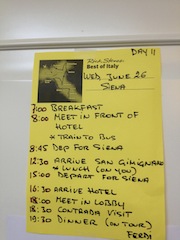 DAY 11
Rick Steves
Best of Italy
WED, JUNE 26
SIENA
7:00 BREAKFAST
8:00 MEET IN FRONT OF
HOTEL
* TRAIN TO BUS
8:45 DEP FOR SIENA
12:30 ARRIVE SAN GIMIGNANO
* LUNCH (ON YOU)
15:00 DEPART FOR SIENA
16:30 ARRIVE HOTEL
18:00 MEET IN LOBBY
18:30 CONTRADA VISIT
19:30 DINNER (ON TOUR)
FERDI